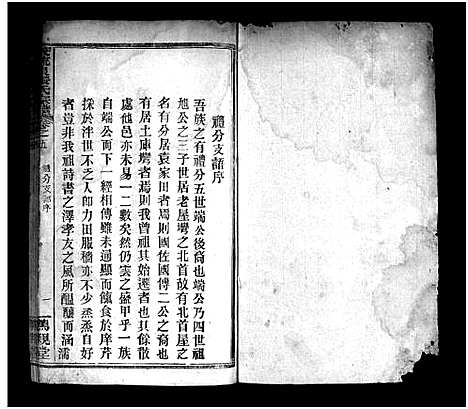 禮分支譜序
吾族之有禮分五世端公後裔也端公乃四世祖
旭公之三子世居老屋灣之北首故有北首屋之
名有分居袁家田者焉則國佐國博二公之裔也
有居土庫塆者焉則我曾祖其始遷者也其餘散
處他邑亦未易一二數矣然仍雲之盛甲乎一族
自端公而下一經相傳雖未過顯而餼食於庠芹
採於泮世不乏人卽力田服穡亦不少烝烝自好
者豈非我祖詩書之澤孝友之風所醞釀而涵濡
禮分支譜序
一
堂